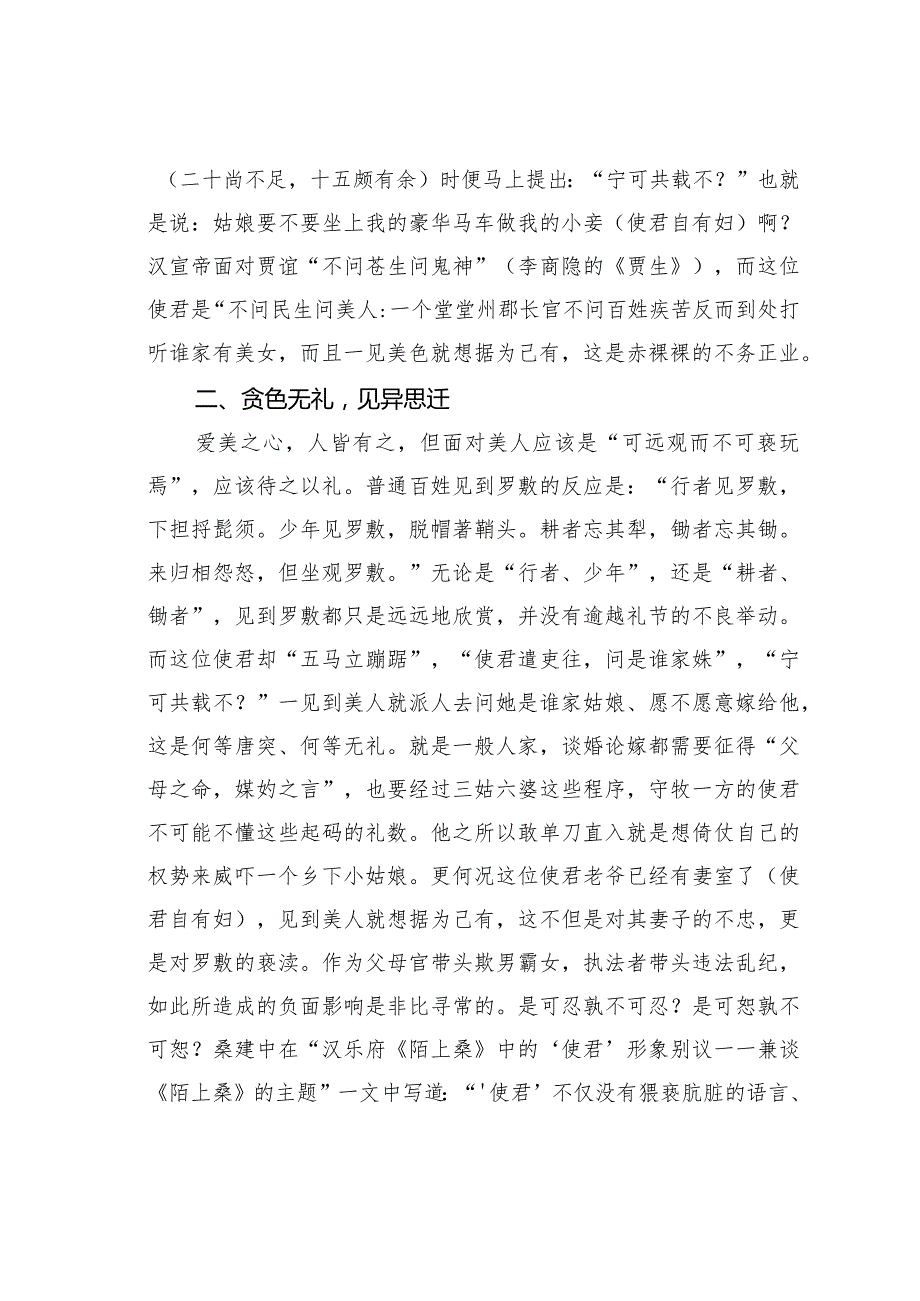 （二十尚不足，十五颇有余）时便马上提出：“宁可共载不？”也就
是说：姑娘要不要坐上我的豪华马车做我的小妾（使君自有妇）啊？
汉宣帝面对贾谊“不问苍生问鬼神”（李商隐的《贾生》），而这位
使君是“不问民生问美人:一个堂堂州郡长官不问百姓疾苦反而到处打
听谁家有美女，而且一见美色就想据为己有，这是赤裸裸的不务正业。
二、贪色无礼，见异思迁
爱美之心，人皆有之，但面对美人应该是“可远观而不可亵玩
焉”，应该待之以礼。普通百姓见到罗敷的反应是：“行者见罗敷，
下担捋髭须。少年见罗敷，脱帽著鞘头。耕者忘其犁，锄者忘其锄。
来归相怨怒，但坐观罗敷。”无论是“行者、少年”，还是“耕者、
锄者”，见到罗敷都只是远远地欣赏，并没有逾越礼节的不良举动。
而这位使君却“五马立蹦踞”，“使君遣吏往，问是谁家姝”，“宁
可共载不？”一见到美人就派人去问她是谁家姑娘、愿不愿意嫁给他，
这是何等唐突、何等无礼。就是一般人家，谈婚论嫁都需要征得“父
母之命，媒妁之言”，也要经过三姑六婆这些程序，守牧一方的使君
不可能不懂这些起码的礼数。他之所以敢单刀直入就是想倚仗自己的
权势来威吓一个乡下小姑娘。更何况这位使君老爷已经有妻室了（使
君自有妇），见到美人就想据为己有，这不但是对其妻子的不忠，更
是对罗敷的亵渎。作为父母官带头欺男霸女，执法者带头违法乱纪，
如此所造成的负面影响是非比寻常的。是可忍孰不可忍？是可恕孰不
可恕？桑建中在“汉乐府《陌上桑》中的‘使君’形象别议一一兼谈
《陌上桑》的主题”一文中写道：“'使君’不仅没有猥亵肮脏的语言、